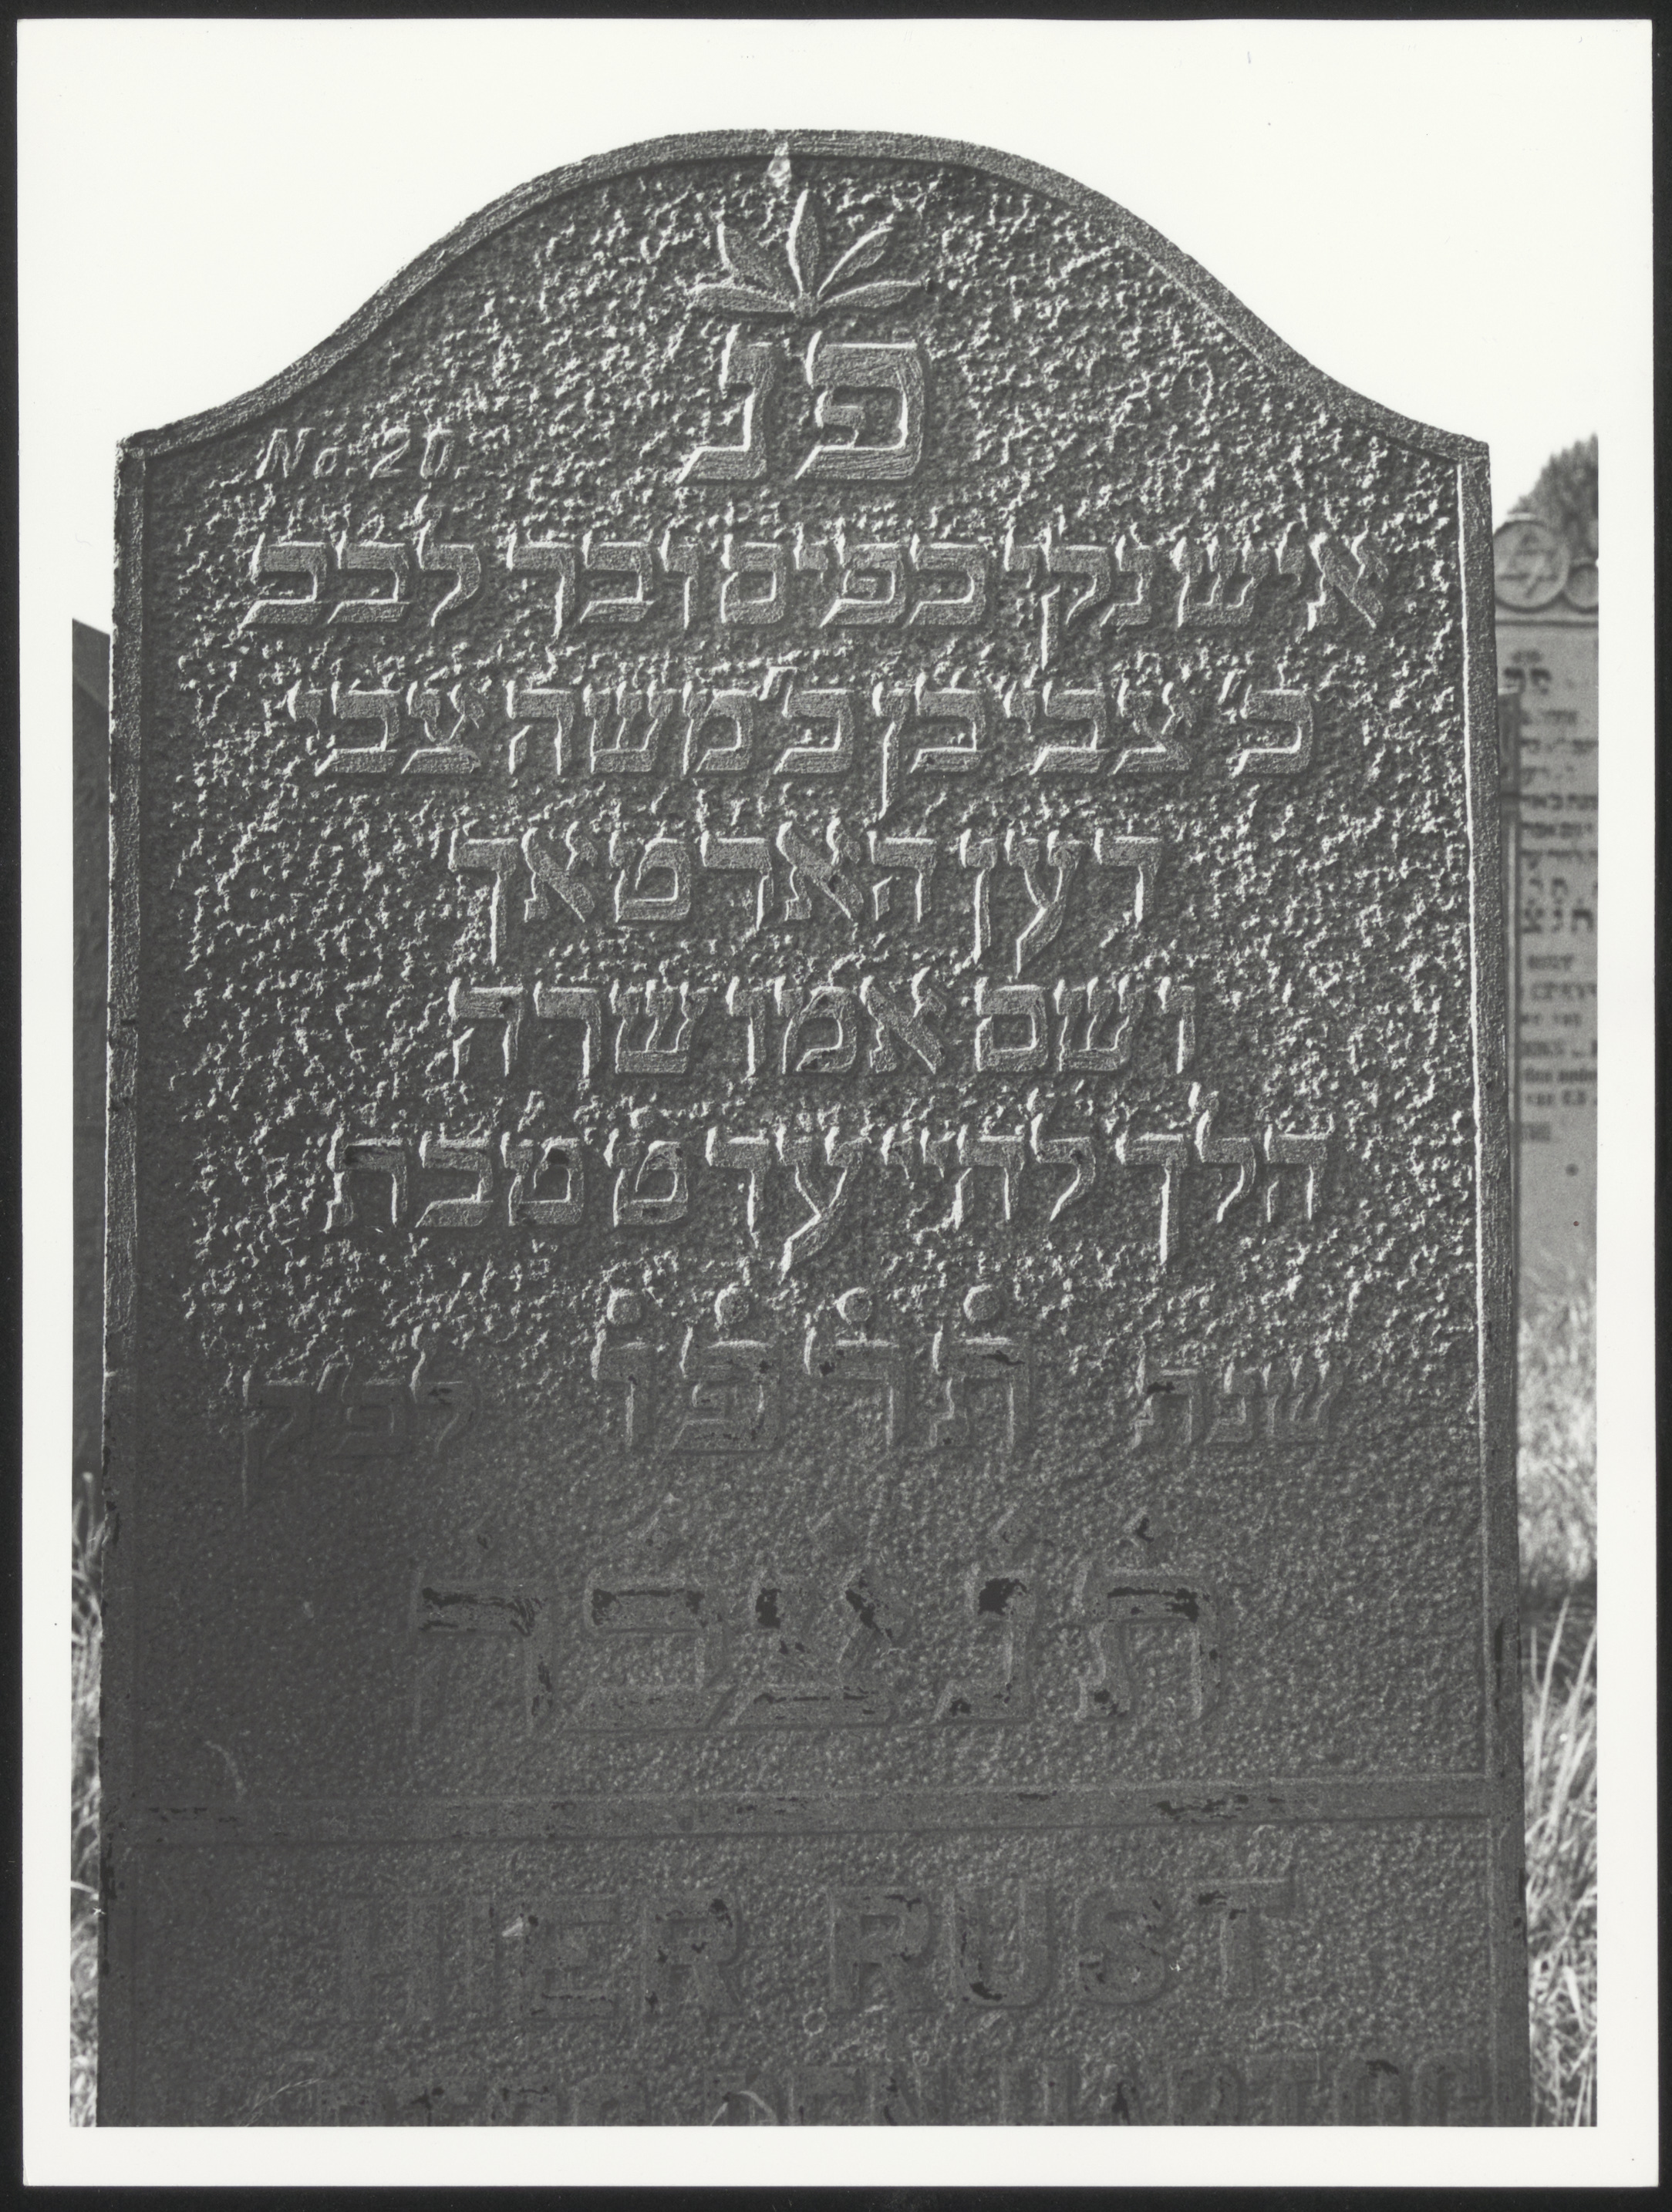 פנ
No. 26.
איש נקי כפים ובר לבב
כ' צבי בן כ' משה צבי
דען הארטאך
ושם אמו שרה
הלך לחיי עד ט טבת
שנת תרפו לפק
תנצבה
HIER RUST
DEN HARTOG